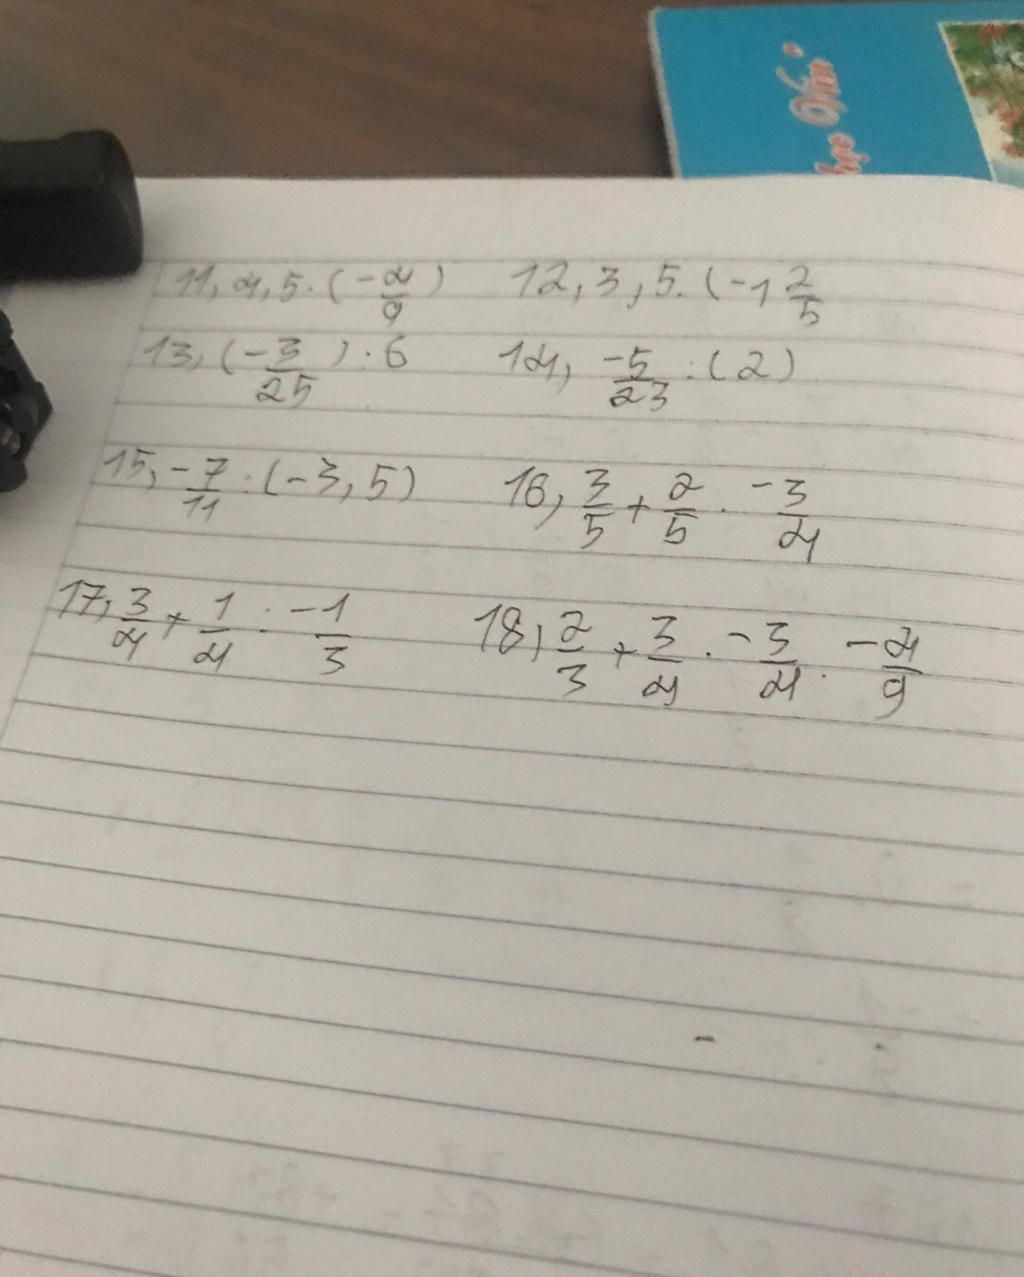 học Văn
11, 4,5 . (-4/9) 12, 3,5. (-1 2/5
13, (-3/25) : 6 14, -5/23 : (2)
15, -7/11 : (-3,5) 16, 3/5 + 2/5 . -3/4
17, 3/4 + 1/4 . -1/3 18, 2/3 + 3/4 . -3/4 . -4/9